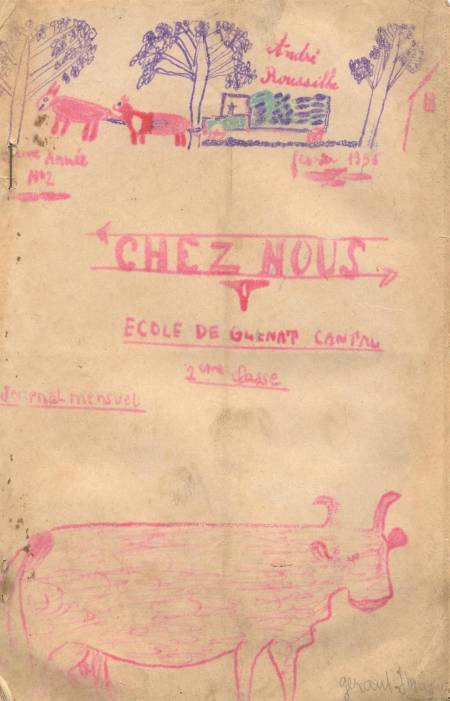 André
Roussilhe
Année
N°2
1956
CHEZ NOUS
ECOLE DE GLENAT CANTAL
2ème classe
Journal mensuel